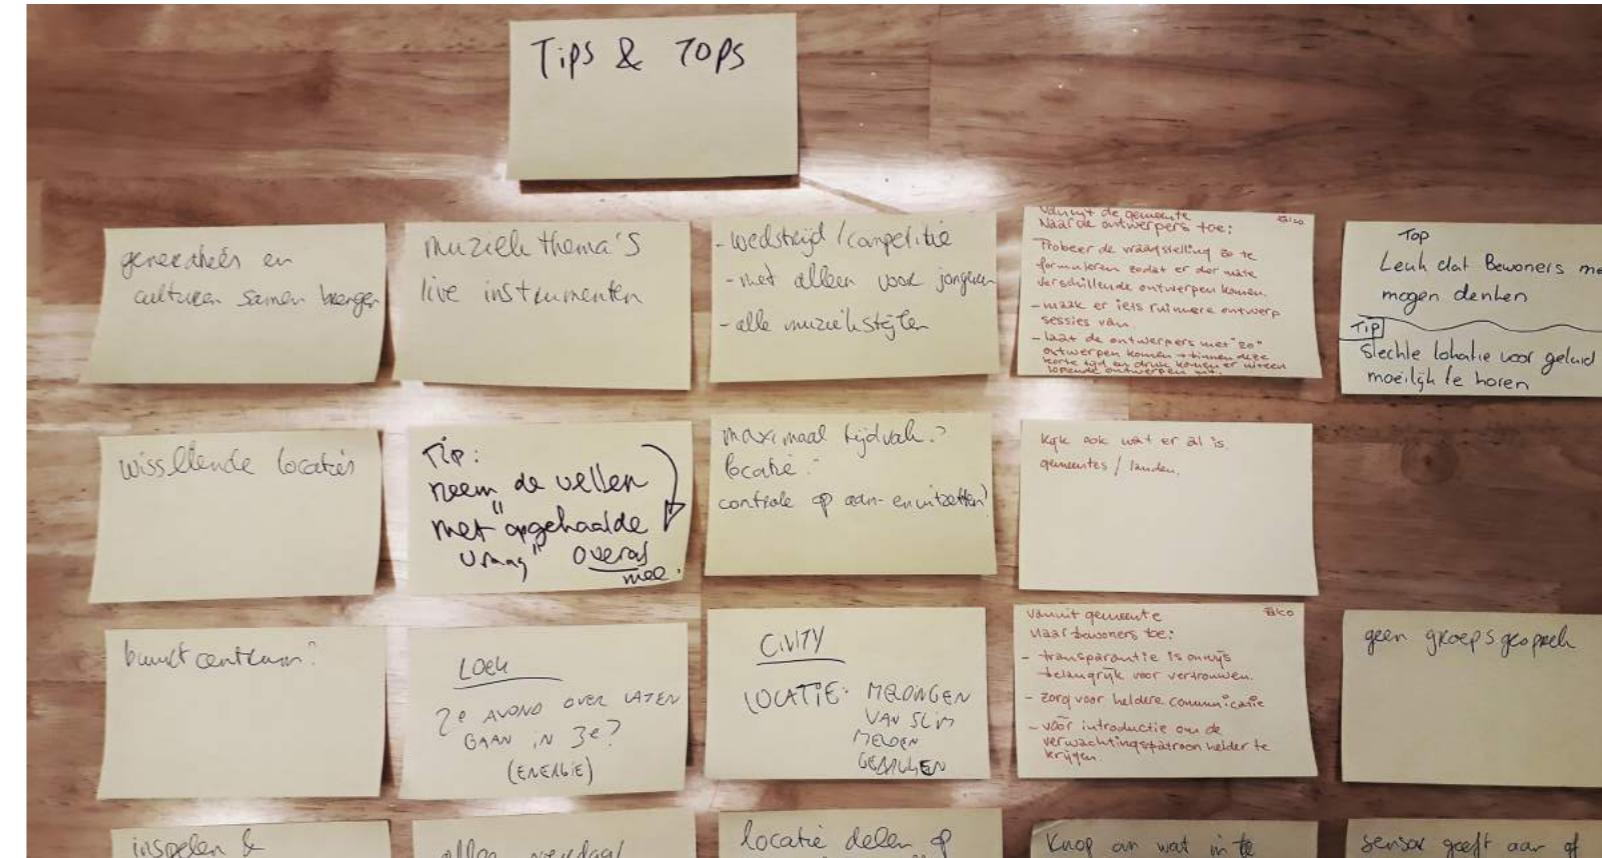 Tips & Tops
generaties en
culturen samen brengen
muziek thema's
live instrumenten
- wedstrijd / competitie
- niet alleen voor jongeren
- alle muziekstijlen
Vanuit de gemeente
Naar de ontwerpers toe:
- Probeer de vraagstelling zo te
formuleren zodat er der mate
verschillende ontwerpen komen.
- maak er iets ruimere ontwerp
sessies van.
- laat de ontwerpers met "20"
ontwerpen komen → binnen deze
korte tijd en druk komen er uiteen
lopende ontwerpen uit.
Top
Leuk dat Bewoners me
mogen denken
Tip
Slechte lokatie voor geluid
moeilijk te horen
wisselende locaties
Tip:
neem de vellen
met "opgehaalde
vraag" overal
mee.
maximaal tijdvak?
locatie?
controle op aan- en uitzetten?
Kijk ook wat er al is.
gemeentes / landen.
buurtcentrum?
LOEK
2e AVOND OVER LATEN
GAAN IN 3e?
(ENERGIE)
CIVITY
LOCATIE: MELDINGEN
VAN SLIM
MELDEN
GEBRUIKEN
Vanuit gemeente
Naar bewoners toe:
- transparantie is onwijs
belangrijk voor vertrouwen.
- zorg voor heldere communicatie
- vóór introductie om de
verwachtingspatroon helder te
krijgen.
geen groepsgesprek
inspelen &
locatie delen op
Knop om wat in te
sensor geeft aan of